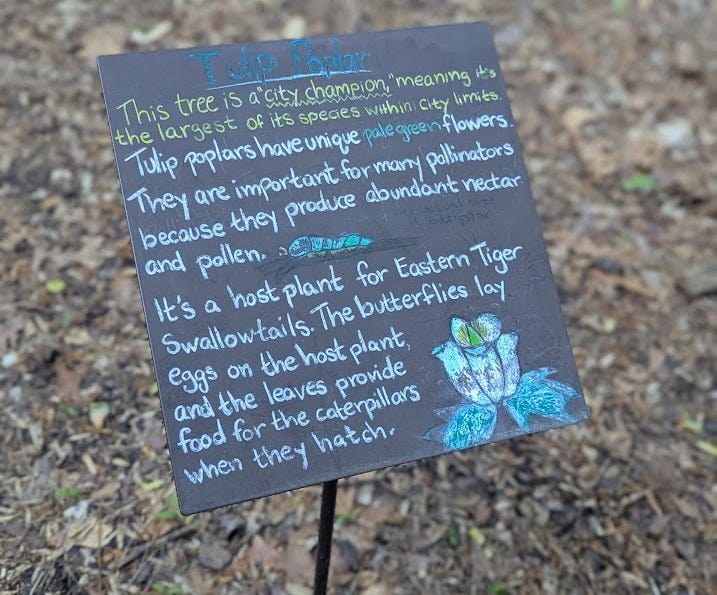 Tulip Poplar
This tree is a "city champion," meaning it's
the largest of its species within City limits.
Tulip poplars have unique pale green flowers.
They are important for many pollinators
because they produce abundant nectar
and pollen.
actual size
caterpillar
It's a host plant for Eastern Tiger
Swallowtails. The butterflies lay
eggs on the host plant,
and the leaves provide
food for the caterpillars
when they hatch.